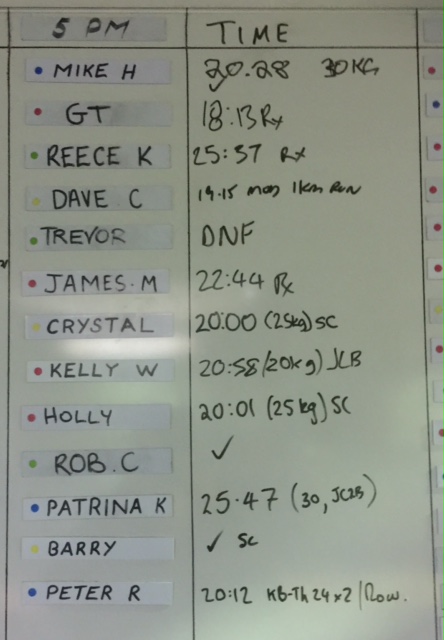 5 PM TIME
MIKE H 20.28 30KG
GT 18:13 Rx
REECE K 25:37 Rx
DAVE C 19.15 mod 1km Run
TREVOR DNF
JAMES.M 22:44 Rx
CRYSTAL 20:00 (25kg) SC
KELLY W 20:58 (20kg) JCB
HOLLY 20:01 (25kg) SC
ROB.C ✓
PATRINA K 25.47 (30, )
BARRY ✓ SC
PETER R 20:12 KB-Th 24x2/Row.